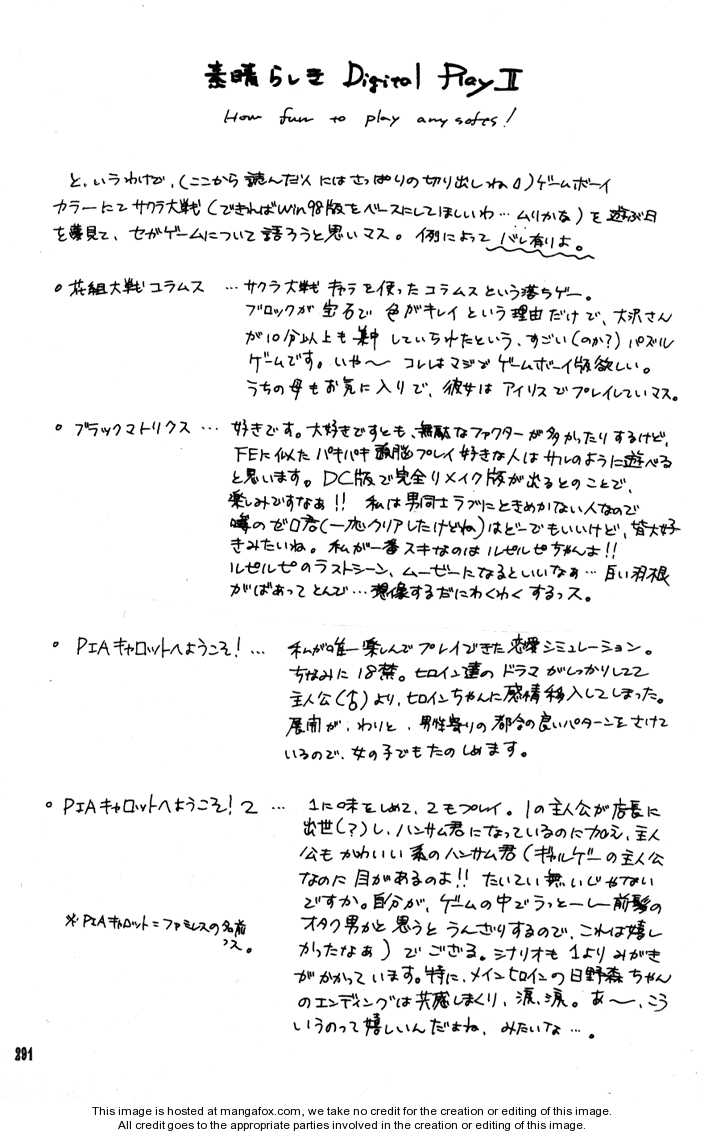 素晴らしき Digital Play II
How fun to play any softs!
と、いうわけで、(ここから読んだ人にはさっぱりの切り出しね)ゲームボーイ
カラーにてサクラ大戦(できればWin98版をベースにしてほしいわ…ムリかな)を遊ぶ日
を夢見て、セガゲームについて語ろうと思いマス。例によってバレ有りよ。
○花組大戦コラムス …サクラ大戦キャラを使ったコラムスという落ちゲー。
ブロックが宝石で色がキレイという理由だけで、大沢さん
が10分以上も集中していられたという、すごい(のか?)パズル
ゲームです。いや〜コレはマジでゲームボーイ版欲しい。
うちの母もお気に入りで、彼女はアイリスでプレイしていマス。
○ブラックマトリクス … 好きです。大好きですとも、無駄なファクターが多かったりするけど、
FEに似たバキバキ頭脳プレイ好きな人はサルのように遊べる
と思います。DC版で完全リメイク版が出るとのことで、
楽しみですなぁ!! 私は男同士ラブにときめかない人なので
噂のゼロ君(一応クリアしたけどね)はどーでもいいけど、皆大好
きみたいね。私が一番スキなのはルピルピちゃんよ!!
ルピルピのラストシーン、ムービーになるといいなぁ…白い羽根
がばあってとんで…想像するだにわくわくするっス。
○PIAキャロットへようこそ! … 私が唯一楽しんでプレイできた恋愛シミュレーション。
ちなみに18禁。ヒロイン達のドラマがしっかりしてて
主人公(♂)より、ヒロインちゃんに感情移入してしまった。
展開が、わりと、男性寄りの都合の良いパターンをさけて
いるので、女の子でもたのしめます。
○PIAキャロットへようこそ!2 … 1に味をしめて、2もプレイ。1の主人公が店長に
出世(?)し、ハンサム君になっているのに加え、主人
公もかわいい系のハンサム君(ギャルゲーの主人公
なのに目があるのよ!! たいてい無いじゃない
ですか。自分が、ゲームの中でうっとーしー前髪の
オタク男かと思うとうんざりするので、これは嬉し
かったなぁ)でござる。シナリオも1よりみがき
がかかっています。特に、メインヒロインの日野森ちゃん
のエンディングは共感しまくり、涙、涙。あ〜、こう
いうのって嬉しいんだよね、みたいな…。
※PIAキャロット=ファミレスの名前
っス。
291
This image is hosted at mangafox.com, we take no credit for the creation or editing of this image.
All credit goes to the appropriate parties involved in the creation or editing of this image.